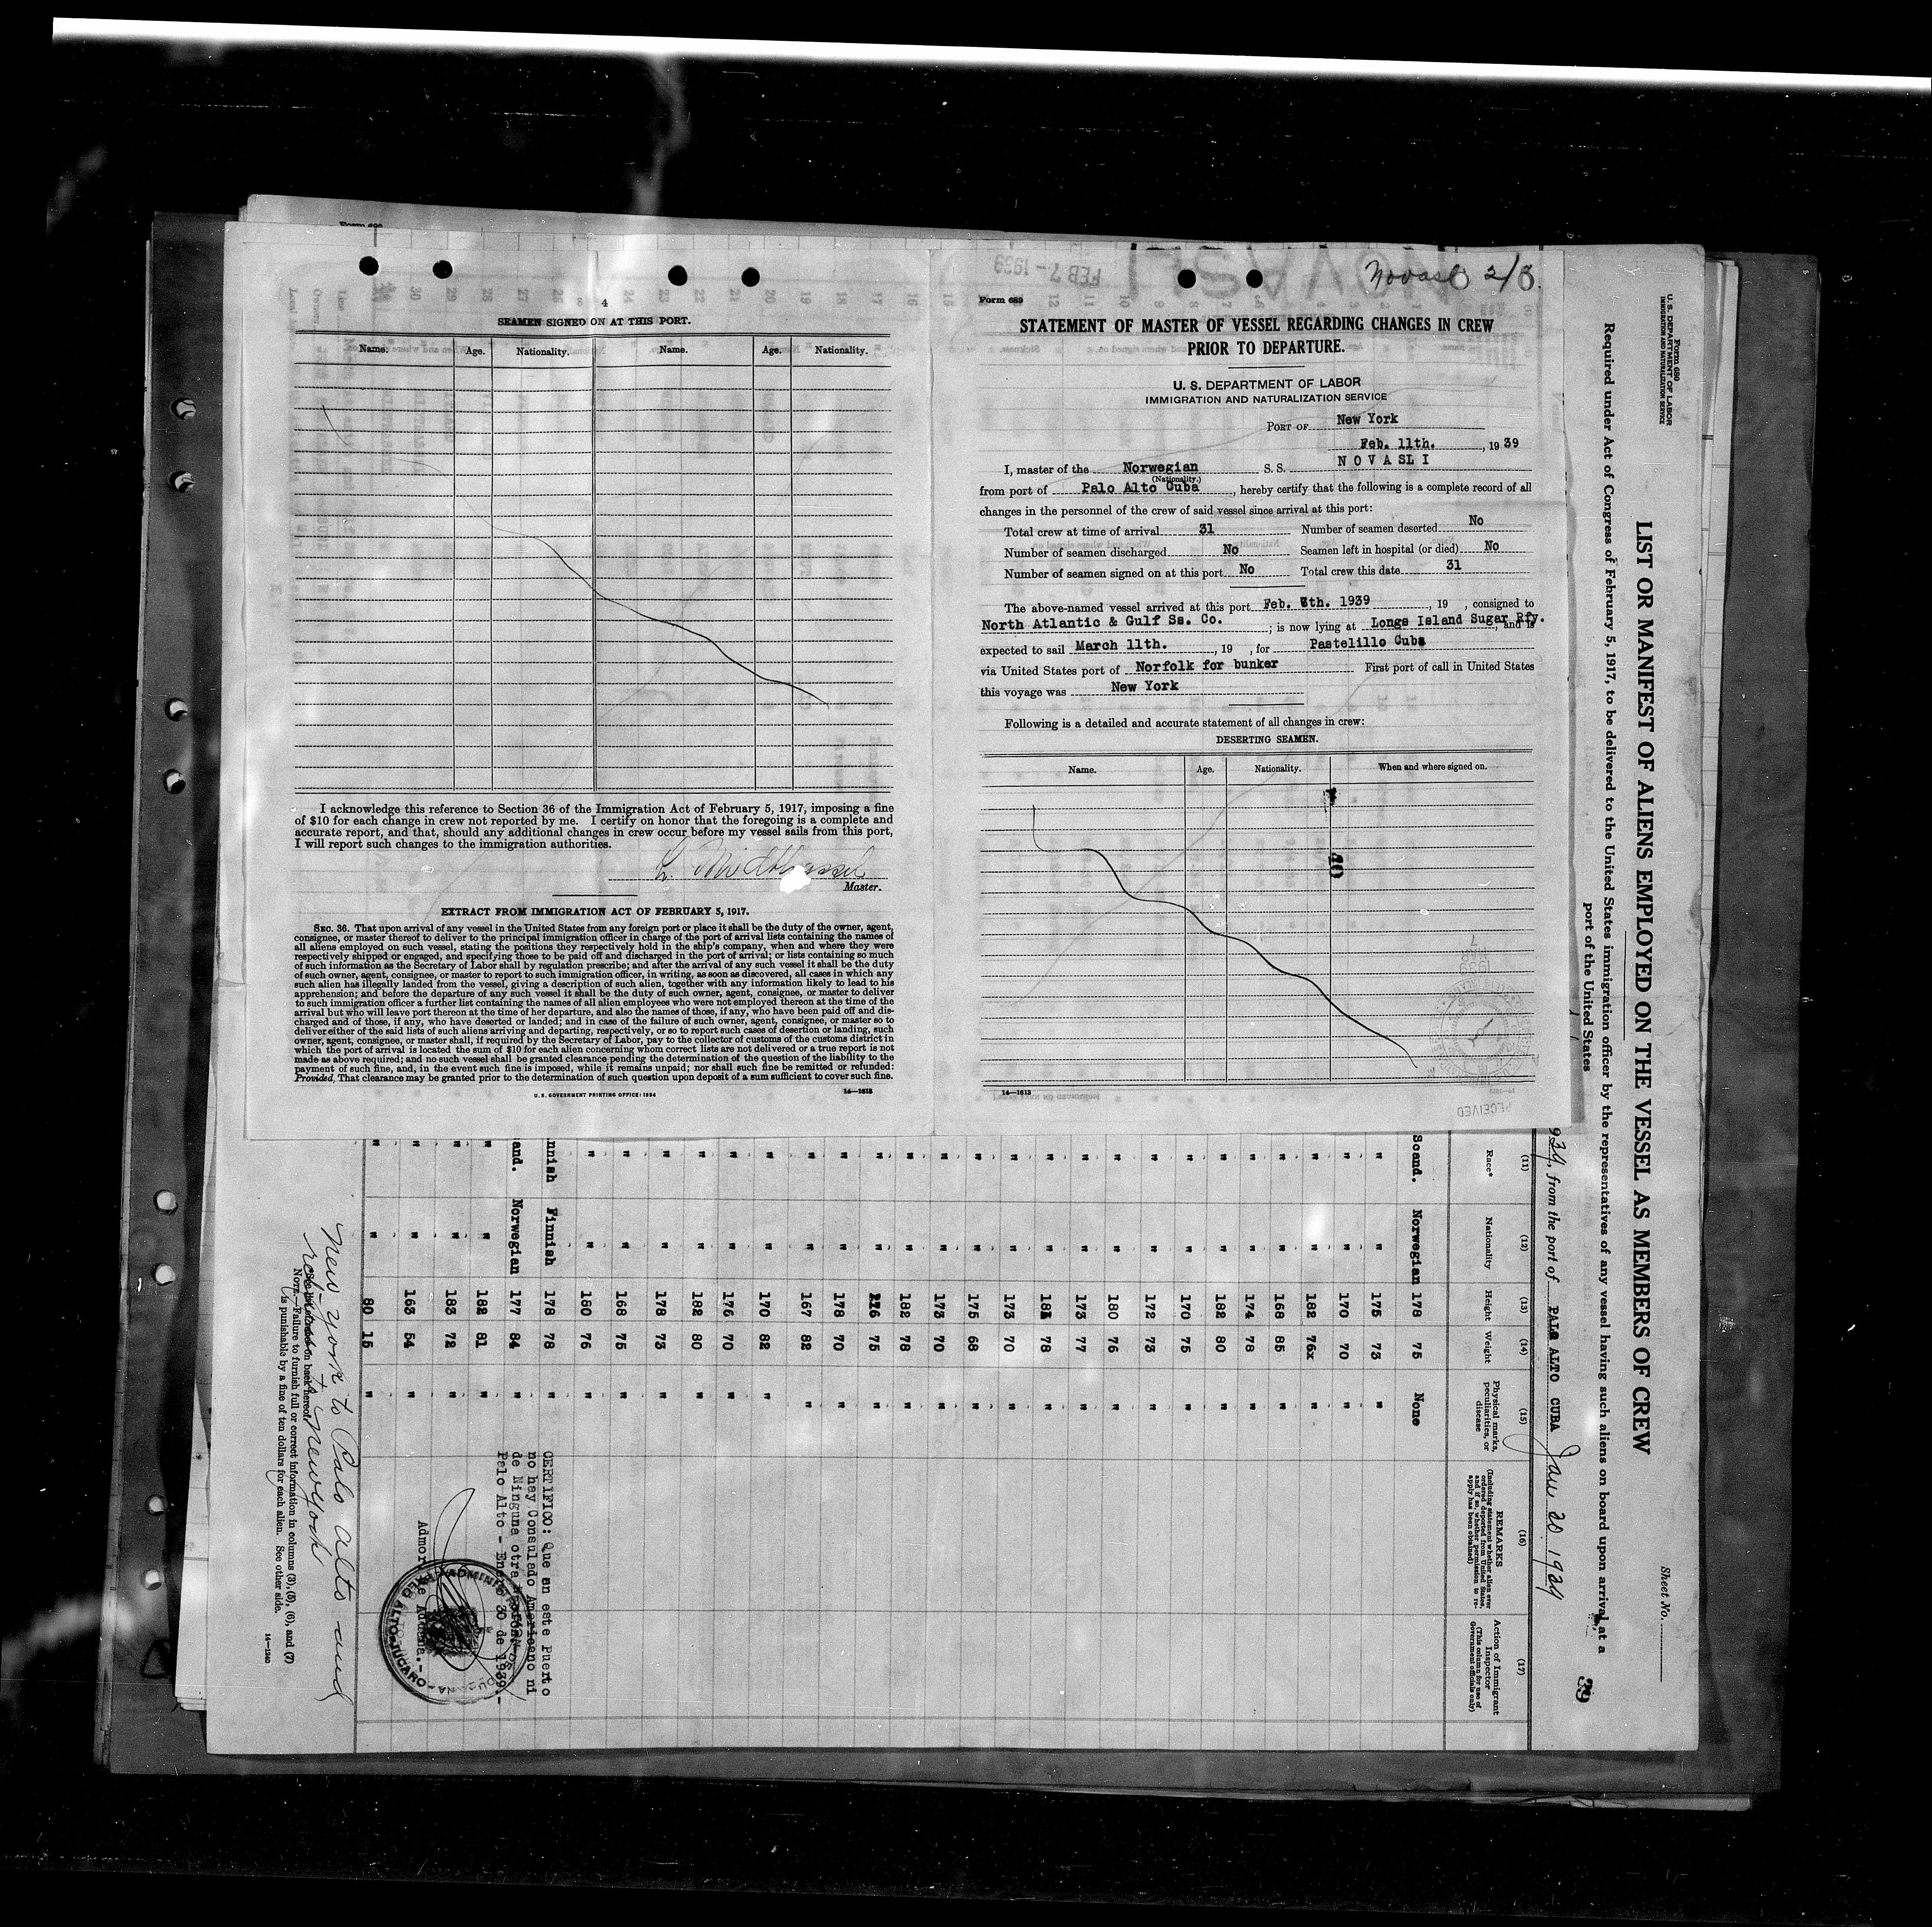 4
SEAMEN SIGNED ON AT THIS PORT.
Name. Age. Nationality. Name. Age. Nationality.
I acknowledge this reference to Section 36 of the Immigration Act of February 5, 1917, imposing a fine
of $10 for each change in crew not reported by me. I certify on honor that the foregoing is a complete and
accurate report, and that, should any additional changes in crew occur before my vessel sails from this port,
I will report such changes to the immigration authorities.
Master.
EXTRACT FROM IMMIGRATION ACT OF FEBRUARY 5, 1917.
SEC. 36. That upon arrival of any vessel in the United States from any foreign port or place it shall be the duty of the owner, agent,
consignee, or master thereof to deliver to the principal immigration officer in charge of the port of arrival lists containing the names of
all aliens employed on such vessel, stating the positions they respectively hold in the ship's company, when and where they were
respectively shipped or engaged, and specifying those to be paid off and discharged in the port of arrival; or lists containing so much
of such information as the Secretary of Labor shall by regulation prescribe; and after the arrival of any such vessel it shall be the duty
of such owner, agent, consignee, or master to report to such immigration officer, in writing, as soon as discovered, all cases in which any
such alien has illegally landed from the vessel, giving a description of such alien, together with any information likely to lead to his
apprehension; and before the departure of any such vessel it shall be the duty of such owner, agent, consignee, or master to deliver
to such immigration officer a further list containing the names of all alien employees who were not employed thereon at the time of the
arrival but who will leave port thereon at the time of her departure, and also the names of those, if any, who have been paid off and dis-
charged and of those, if any, who have deserted or landed; and in case of the failure of such owner, agent, consignee, or master so to
deliver either of the said lists of such aliens arriving and departing, respectively, or so to report such cases of desertion or landing, such
owner, agent, consignee, or master shall, if required by the Secretary of Labor, pay to the collector of customs of the customs district in
which the port of arrival is located the sum of $10 for each alien concerning whom correct lists are not delivered or a true report is not
made as above required; and no such vessel shall be granted clearance pending the determination of the question of the liability to the
payment of such fine, and, in the event such fine is imposed, while it remains unpaid; nor shall such fine be remitted or refunded:
Provided, That clearance may be granted prior to the determination of such question upon deposit of a sum sufficient to cover such fine.
U. S. GOVERNMENT PRINTING OFFICE: 1934 14—1613
2/8.
Form 689
STATEMENT OF MASTER OF VESSEL REGARDING CHANGES IN CREW
PRIOR TO DEPARTURE.
U. S. DEPARTMENT OF LABOR
IMMIGRATION AND NATURALIZATION SERVICE
PORT OF New York
Feb. 11th., 19 39
I, master of the Norwegian S. S. N O V A SL I
(Nationality.)
from port of Palo Alto Cuba, hereby certify that the following is a complete record of all
changes in the personnel of the crew of said vessel since arrival at this port:
Total crew at time of arrival 31 Number of seamen deserted No
Number of seamen discharged No Seamen left in hospital (or died) No
Number of seamen signed on at this port No Total crew this date 31
The above-named vessel arrived at this port Feb. 1939, 19 , consigned to
North Atlantic & Gulf Ss. Co. ; is now lying at Longs Island Sugar Rfy., and is
expected to sail March 11th., 19 , for Pastelillo Cuba
via United States port of Norfolk for bunker First port of call in United States
this voyage was New York
Following is a detailed and accurate statement of all changes in crew:
DESERTING SEAMEN.
Name. Age. Nationality. When and where signed on.
40
14—1613
Form 680
U. S. DEPARTMENT OF LABOR
IMMIGRATION AND NATURALIZATION SERVICE
Sheet No.
LIST OR MANIFEST OF ALIENS EMPLOYED ON THE VESSEL AS MEMBERS OF CREW
Required under Act of Congress of February 5, 1917, to be delivered to the United States immigration officer by the representatives of any vessel having such aliens on board upon arrival at a
port of the United States
39
from the port of PALO ALTO CUBA
(11) (12) (13) (14) (15) (16) (17)
Race* Nationality Height Weight Physical marks, peculiarities, or disease REMARKS (Including statement whether alien ever ordered deported from United States, and if so, whether permission to re-apply has been obtained) Action of Immigrant Inspector (This column for use of Government officials only)
Scand. Norwegian 178 75 None
" " 175 73 "
" " 170 70 "
" " 182 76x "
" " 168 85 "
" " 174 78 "
" " 182 80 "
" " 170 75 "
" " 172 73 "
" " 180 76 "
" " 173 77 "
" " 78 "
" " 173 70 "
" " 175 68 "
" " 173 70 "
" " 182 78 "
" " 75 "
" " 178 70 "
" " 167 82 "
" " 170 82 "
" " 176 70 "
" " 182 80 "
" " 178 73 "
" " 168 75 "
" " 180 76 "
nnish Finnish 178 78 "
and. Norwegian 177 84 "
" " 182 81 "
" " 183 72 "
" " 163 54 "
" " 80 15 "
CERTIFICO: Que en este Puerto
no hay Consulado Americano ni
de Ninguna otra
Palo Alto - Enero 30 de 1939.-
Admor de Aduana.-
New York to Palo Alto and
return New York
NOTE.—Failure to furnish full or correct information in columns (3), (5), (6), and (7)
is punishable by a fine of ten dollars for each alien. See other side.
14—1240